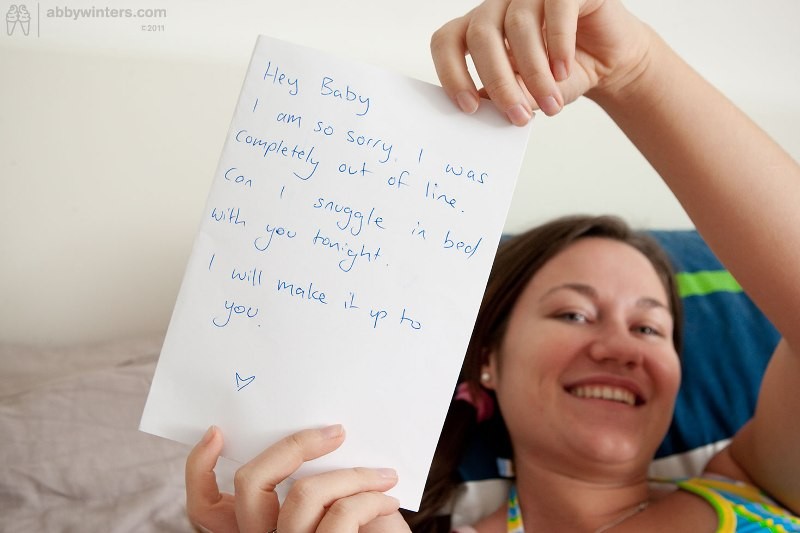 abbywinters.com
©2011
Hey Baby
I am so sorry. I was
completely out of line.
Can I snuggle in bed
with you tonight.
I will make it up to
you.